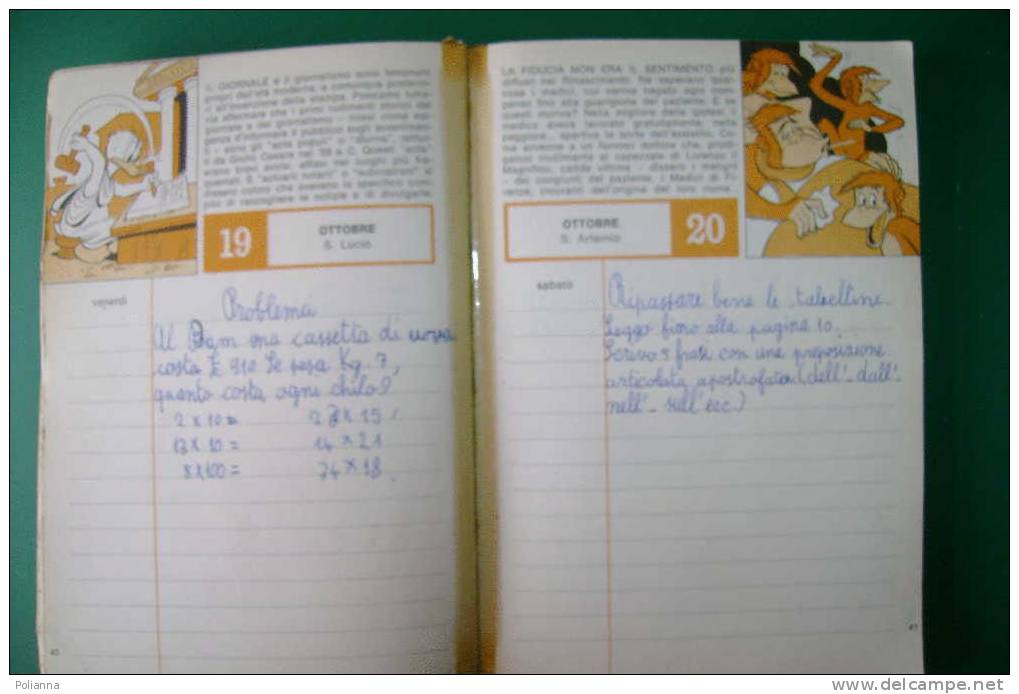 IL GIORNALE e il giornalismo sono fenomeni
propri dell'età moderna, e comunque posteriori
all'invenzione della stampa. Possiamo tutta-
via affermare che i primi rudimenti storici del
giornale e del giornalismo
genza d'informare il pubblico sugli avvenimen-
ti - sono gli "acta populi" o "diurna", volu-
ti da Giulio Cesare nel '59 a.C. Questi "acta"
erano brevi avvisi affissi nei luoghi più fre-
quentati. E "actuarii notarii" o "subrostrani" si
dissero coloro che avevano lo specifico com-
pito di raccogliere le notizie e di divulgarle.
19
OTTOBRE
S. Lucio
venerdì
Problema
Al Bam una cassetta di uova
costa £ 910 Se pesa Kg. 7,
quanto costa ogni chilo?
2 x 10 = 23 x 15
13 x 10 = 14 x 21
8 x 100 = 34 x 18
40
LA FIDUCIA NON ERA IL SENTIMENTO più
diffuso nel Rinascimento. Ne sapevano qual-
cosa i medici, cui veniva negato ogni com-
penso fino alla guarigione del paziente. E se
questi moriva? Nella migliore delle ipotesi, il
medico aveva lavorato gratuitamente; nella
peggiore, spartiva la sorte dell'assistito. Co-
me avvenne a un famoso dottore che, prodi-
gatosi inutilmente al capezzale di Lorenzo il
Magnifico, cadde vittima - dissero i maligni
- dei congiunti del paziente, i Medici di Fi-
renze, incuranti dell'origine del loro nome.
OTTOBRE
S. Artemio
20
sabato
Ripassare bene le tabelline.
Leggo fino alla pagina 10.
Scrivo 8 frasi con una preposizione
articolata apostrofata (dell' - dall' -
nell' - sull' ecc.)
41
Polianna
www.delcampe.net